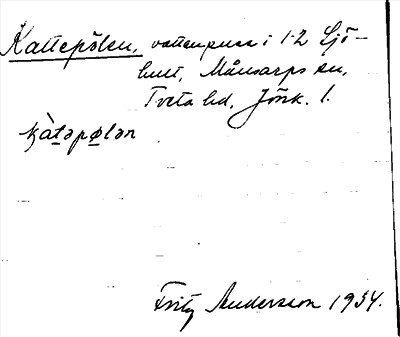 Kattepölen, vattenpuss i 1-2 Sjö-
hult, Månsarps sn,
Tveta hd, Jönk. l.
kàtəpølən
Fritz Andersson 1934.